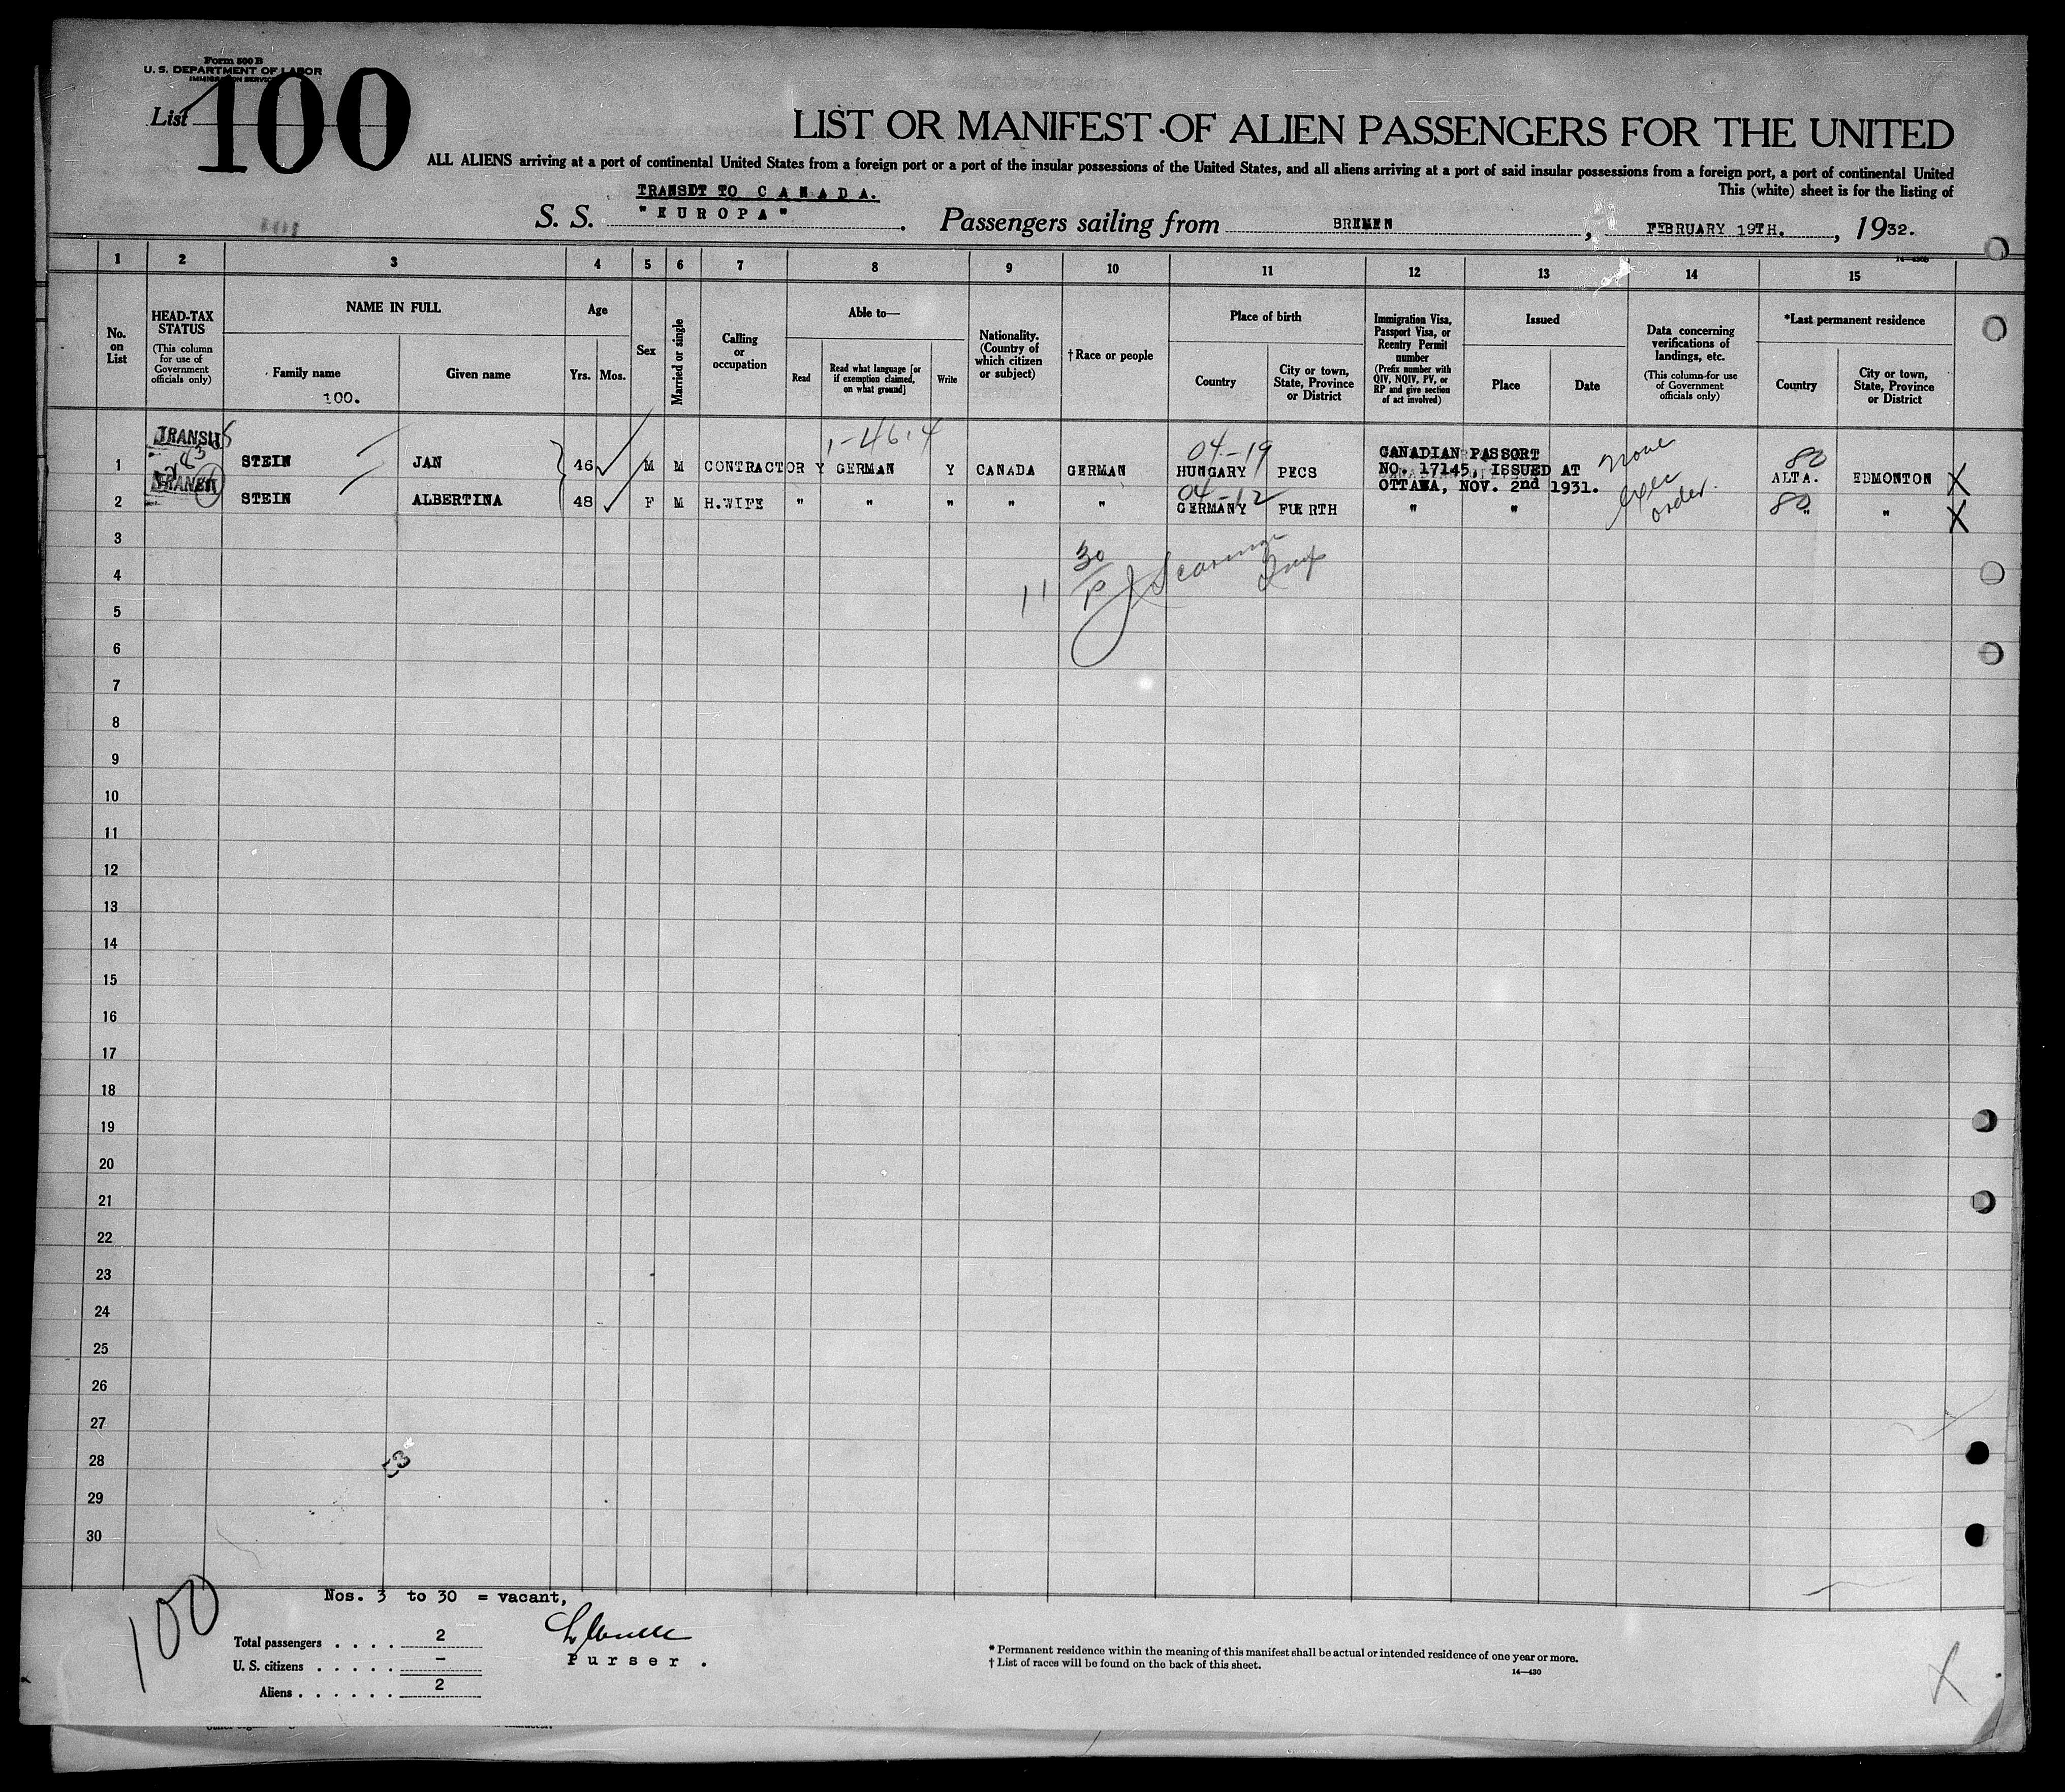 Form 500 B
U. S. DEPARTMENT OF LABOR
IMMIGRATION SERVICE
List 100
LIST OR MANIFEST OF ALIEN PASSENGERS FOR THE UNITED
ALL ALIENS arriving at a port of continental United States from a foreign port or a port of the insular possessions of the United States, and all aliens arriving at a port of said insular possessions from a foreign port, a port of continental United
This (white) sheet is for the listing of
TRANSIT TO CANADA.
S. S. "EUROPA". Passengers sailing from BREMEN, FEBRUARY 19TH., 1932.
14-430B
1 2 3 4 5 6 7 8 9 10 11 12 13 14 15
No. on List
HEAD-TAX STATUS
(This column for use of Government officials only)
NAME IN FULL
Family name
100.
Given name
Age
Yrs. Mos.
Sex
Married or single
Calling or occupation
Able to—
Read
Read what language [or if exemption claimed, on what ground]
Write
Nationality. (Country of which citizen or subject)
†Race or people
Place of birth
Country
City or town, State, Province or District
Immigration Visa, Passport Visa, or Reentry Permit number
(Prefix number with QIV, NQIV, PV, or RP and give section of act involved)
Issued
Place
Date
Data concerning verifications of landings, etc.
(This column for use of Government officials only)
*Last permanent residence
Country
City or town, State, Province or District
TRANSIT
1-46.4
04-19
CANADIAN PASSORT
none
80
1 STEIN JAN 46 M M CONTRACTOR Y GERMAN Y CANADA GERMAN HUNGARY PECS NO. 17145, ISSUED AT ALTA. EDMONTON X
TRANSIT
04-12
OTTAWA, NOV. 2nd 1931.
exec order.
80
2 STEIN ALBERTINA 48 F M H.WIFE " " " " " GERMANY FUERTH " " " " X
3
30
4
P
5
11
6
7
8
9
10
11
12
13
14
15
16
17
18
19
20
21
22
23
24
25
26
27
28
29
30
100
Nos. 3 to 30 = vacant,
Total passengers . . . . 2
U. S. citizens . . . . . -
Aliens . . . . . . 2
Purser.
* Permanent residence within the meaning of this manifest shall be actual or intended residence of one year or more.
† List of races will be found on the back of this sheet.
14—430
X